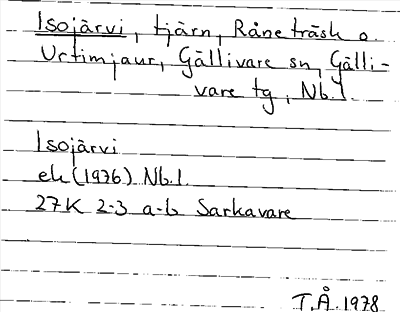 Isojärvi, tjärn, Råneträsk o.
Urtimjaur, Gällivare sn, Gälli-
vare tg, Nb.l.
Isojärvi
ek (1976) Nb.l.
27K 2-3 a-b Sarkavare
T.Å. 1978